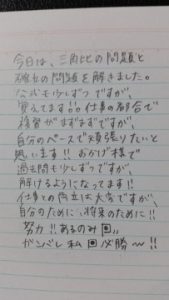 今日は、三角比の問題と
確立の問題を解きました。
公式も少しずつですが、
覚えてます!! 仕事の都合で
復習がまずまずですが、
自分のペースで頑張りたいと
思います!! おかげ様で
過去問も少しずつですが、
解けるようになってます!!
仕事との両立は大変ですが、
自分のために、将来のために!!
努力!! あるのみ回
ガンバレ私回必勝〜!!